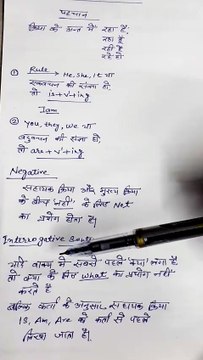 पहचान
क्रिया के अन्त में रहा है,
रहा हूँ
रही है
रहे हो
① Rule → He, She, It या
एकवचन की संज्ञा हो,
तो is+v+ing
I am
② You, they, we या
बहुवचन की संज्ञा हो,
तो are+v+ing
Negative
सहायक क्रिया और मुख्य क्रिया
के बीच नहीं के लिए Not
का प्रयोग होता है।
Interrogative
यदि वाक्य में सबसे पहले क्या लगा है
तो क्या के लिए what का प्रयोग नहीं
करते है
बल्कि कर्ता के अनुसार सहायक क्रिया
Is, Am, Are को कर्ता से पहले
लिखा जाता है।